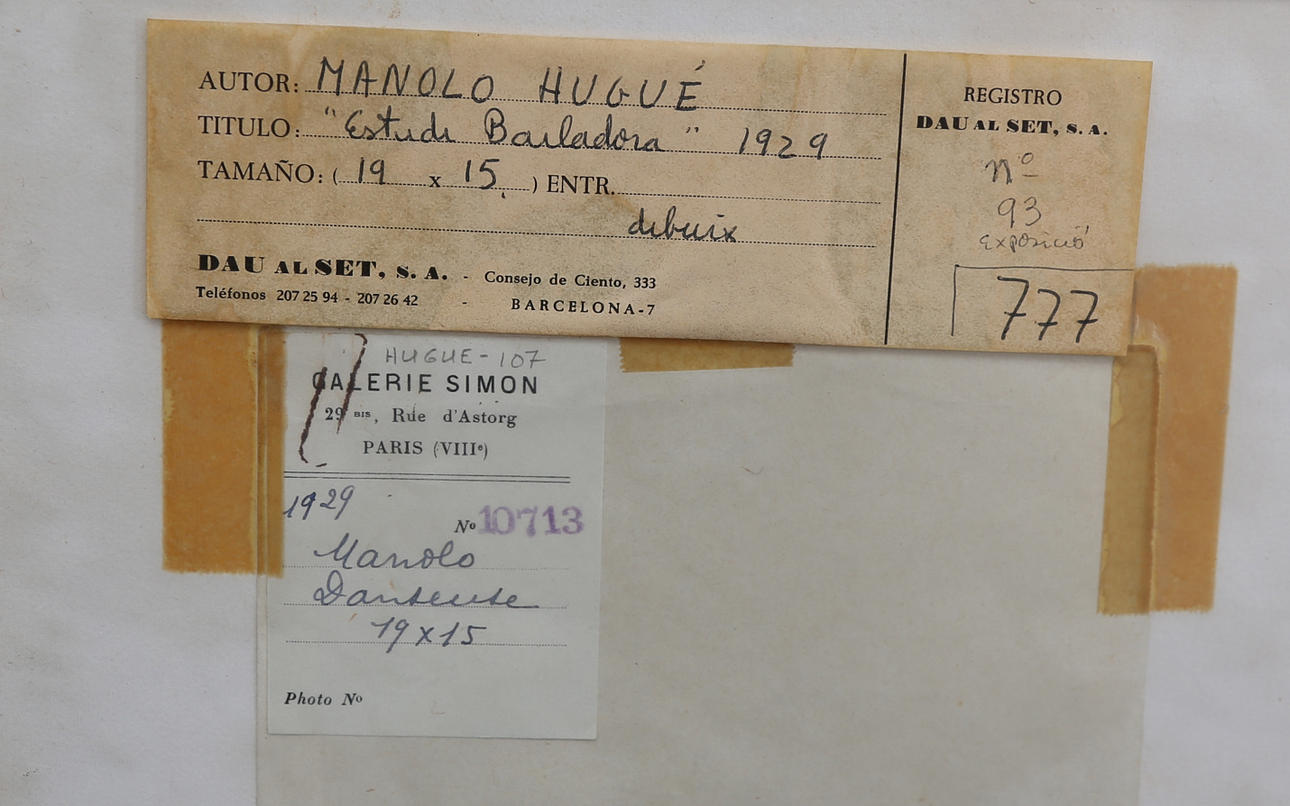 AUTOR: MANOLO HUGUÉ
TITULO: "Estudi Bailadora" 1929
TAMAÑO: ( 19 x 15 ) ENTR.
dibuix
DAU AL SET, S. A. - Consejo de Ciento, 333
Teléfonos 207 25 94 - 207 26 42 - BARCELONA-7
REGISTRO
DAU AL SET, S. A.
nº
93
exposició
777
HUGUE-107
GALERIE SIMON
29 BIS, Rue d'Astorg
PARIS (VIIIe)
1929
Nº 10713
Manolo
Danseuse
19 x 15
Photo Nº